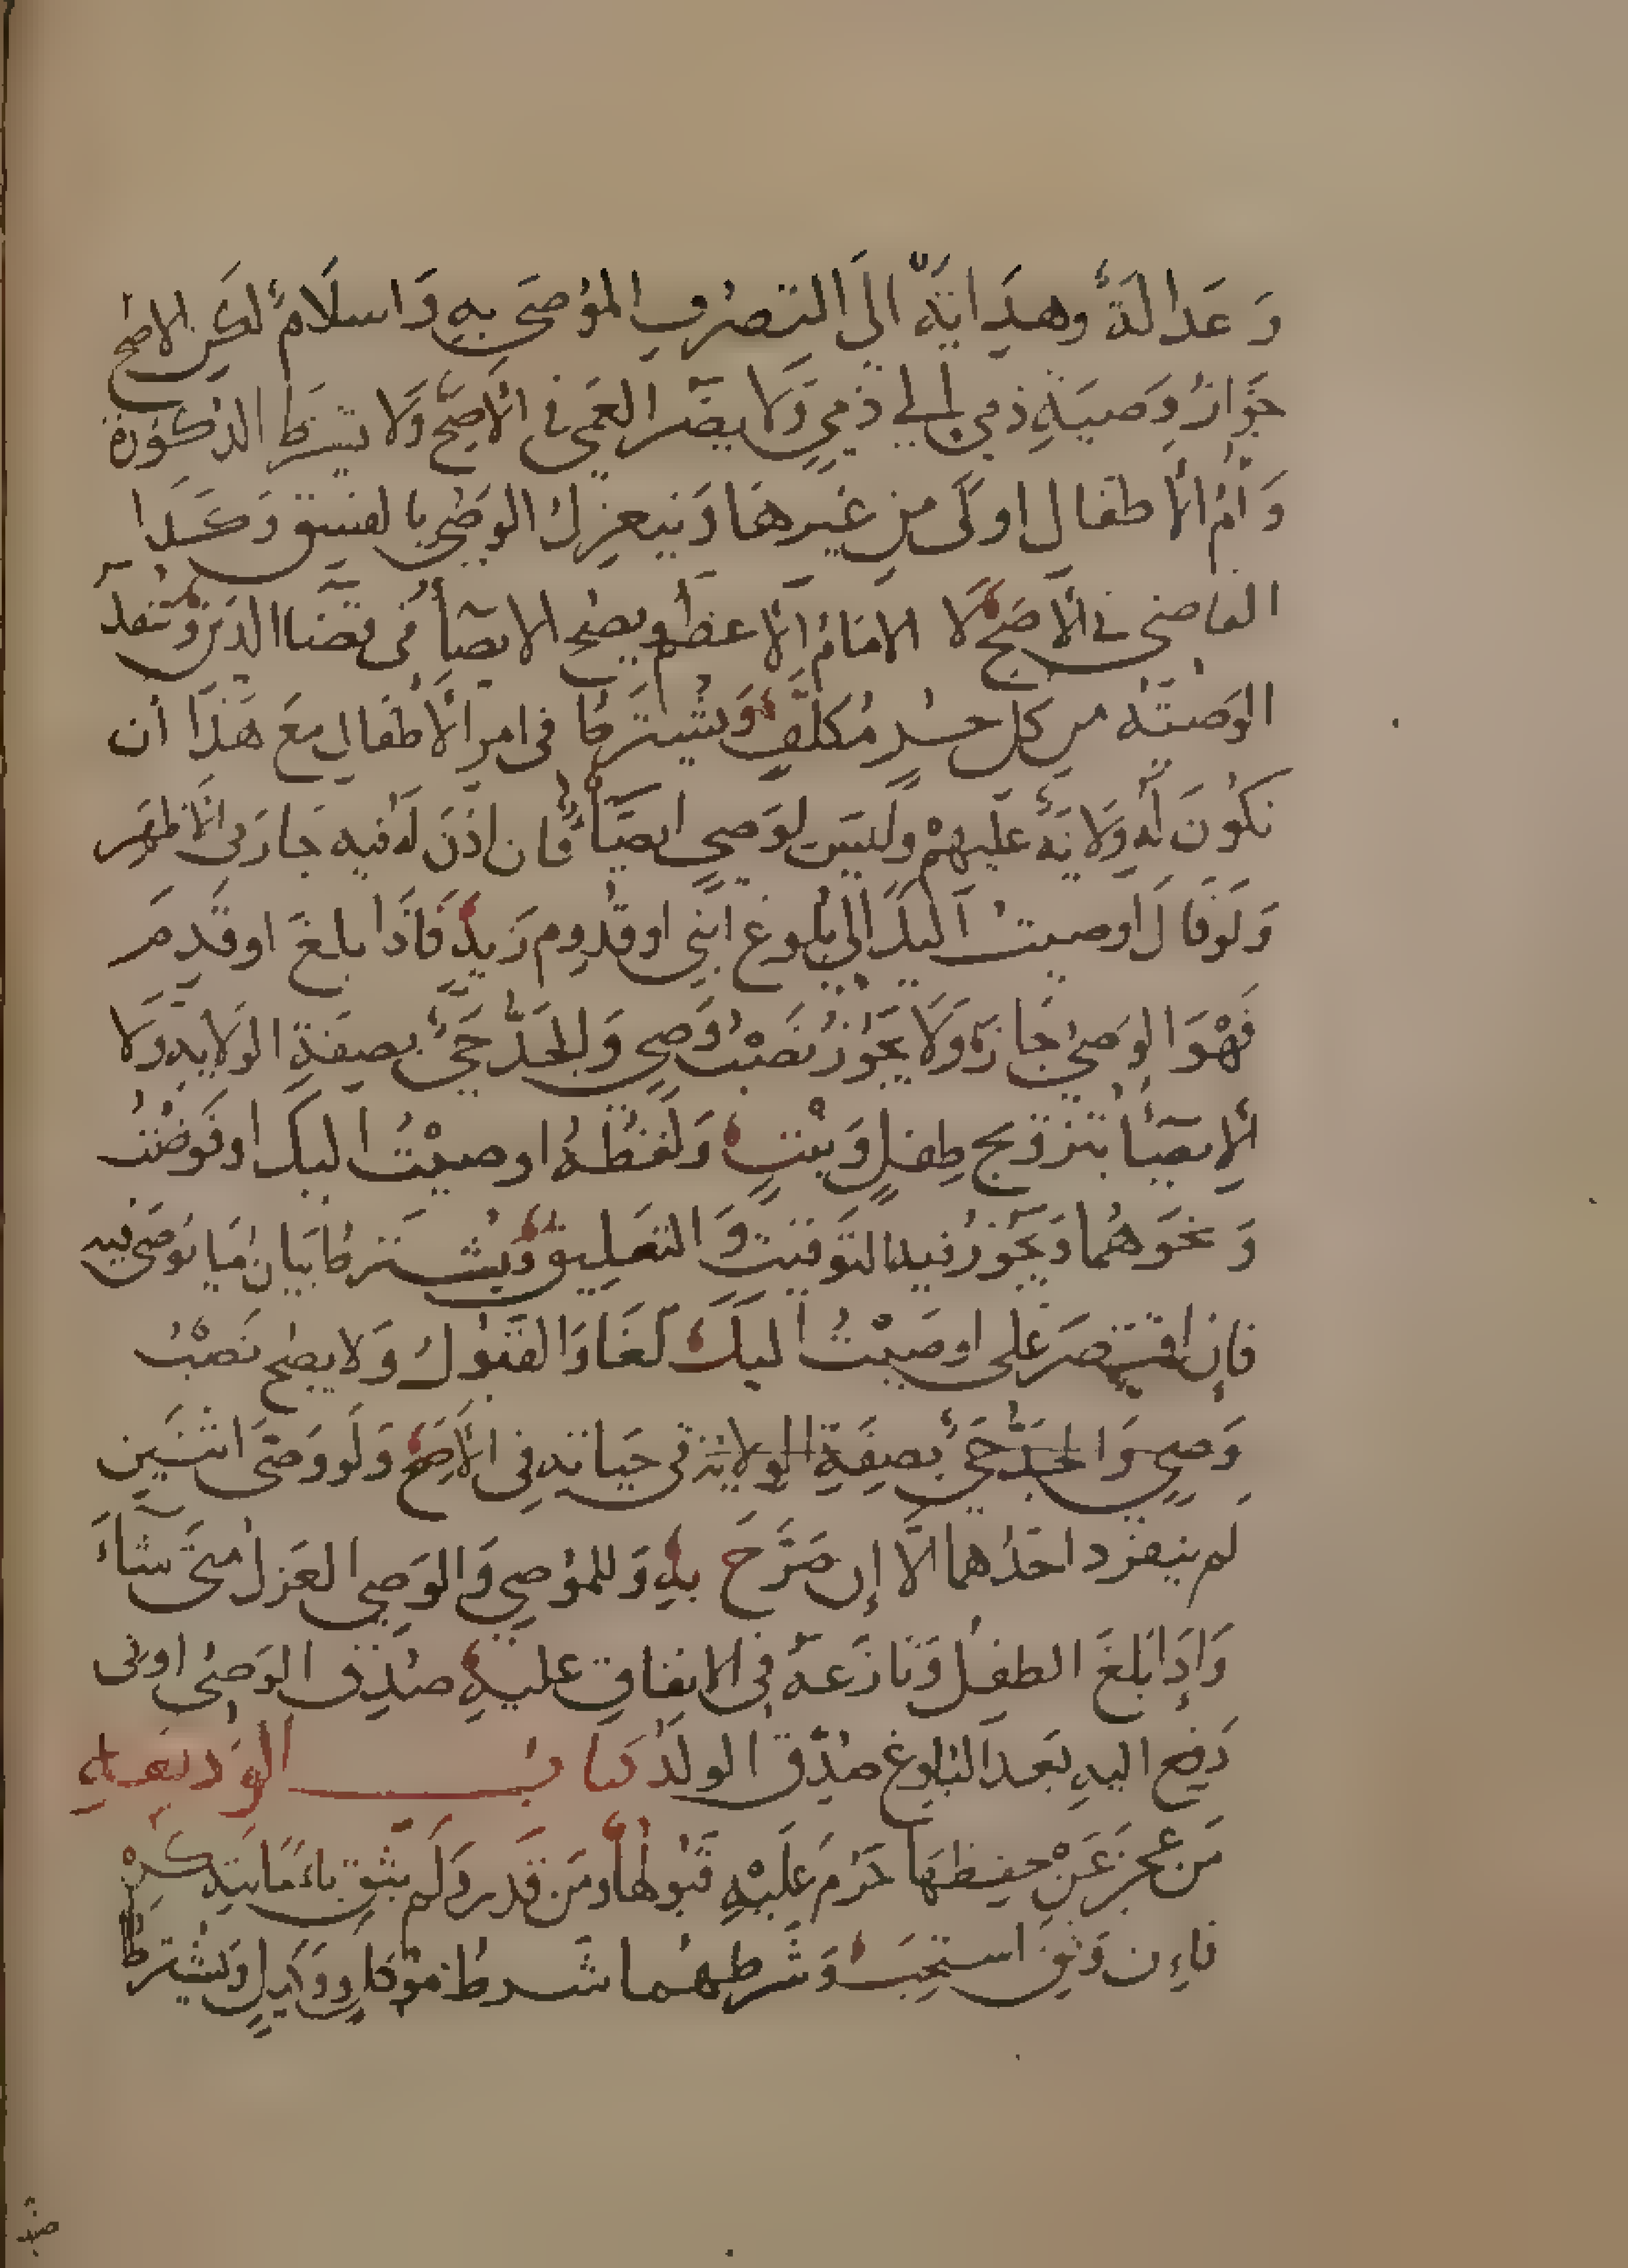 وَعَدالَةٌ وهدَايَةٌ الىَ التصرُفِ الموُصَى بِهِ وَاسلَامٌ لكِن الاصَح
جَوَازُ وَصيَةِ ذمي الي ذمي وَلَا يضَر العَمي في الأصَحّ وَلا تشترَط الذكوُرة
وَأمُ الأطفال اولَى مِن غيرهَا وَينعزِلُ الوَصِي بالفسِق وَكَذا
القاضي في الأصَح لَا الامَامُ الأعظم ويصحُ الايصَآ في قضَا الدَين وتنفيذ
الوَصيَّه من كل حُرٍ مُكَلَّفٍ وَيشترَط في امر الأطفالِ معَ هَذَا أن
تكُونَ لَهُ ولَايَةٌ عَليهمْ وَليسَ لوَصيٍ ايصَآءٌ فان اذنَ لَهُ فيه جَازَ في الأظهَر
وَلَو قالَ اوصيتُ اليكَ الى بلُوغ ابني او قدُوم زَيدٍ فَاذَا بلغَ او قَدِمَ
فَهْوَ الوَصيُ جَازَ وَلَا يَجوُزُ نَصْبُ وَصيٍ وَالجَدُّ حَيٌّ بصِفَةِ الولَايةِ وَلا
الإيصَآءُ بتزويج طِفلٍ وَبنْتٍ وَلفظُهُ اوصيْتُ اليكَ او فَوضْتُ
وَنحوَهُما وَيَجُوزُ فيه التَوقيتُ وَالتعَليق وَيُشترط بيَانُ مَا يوُصَى فيه
فإن اقتصَرَ على اوصَيْتُ اليكَ لَغَا وَالقَبوُلُ وَلا يصِح نَصْبُ
وَصيٍ وَالجدُّ حَيٌّ بصفَةِ الولايةِ في حيَاته فِي الأصَح وَلَو وَصَى اثنَين
لم ينفرد احَدُهما الَّا إن صَرَّحَ بهِ وَللموُصِي وَالوَصِي العَزلُ متَى شَاءَ
وَإذَا بَلغَ الطفِلُ وَنَازَعهُ في الانفاقِ عليهِ صُدِقَ الوَصيُ او في
دَفعِ اليهِ بَعدَ البُلوغِ صُدِّقَ الولَدُ كتابُ الوَديعَةِ
مَن عجزَ عَنْ حفِظهَا حَرُمَ عَليْهِ قَبُولهَا وَمَن قَدَر وَلَم يثق بأمَانته كُرِهْ
فإن وَثقَ استُحِبَّ وَشَرطهُما شرط موُكلٍ ووَكيلٍ وَيشترَط